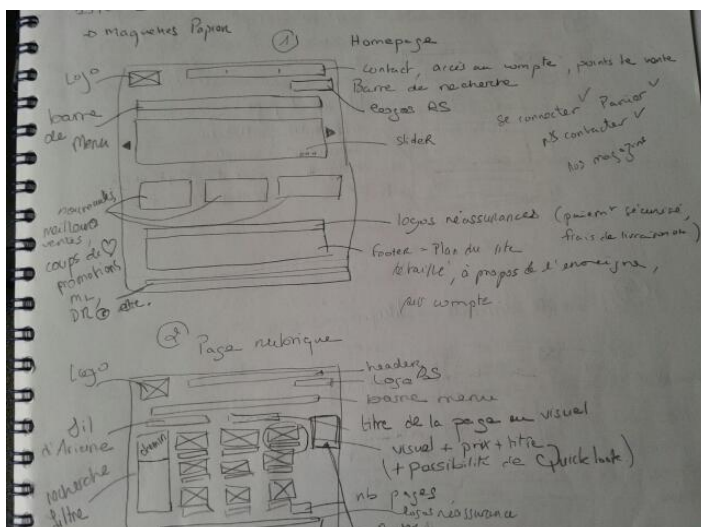 -> maquettes Papier
① Homepage
Logo
contact, accès au compte, points de vente
Barre de recherche
logos RS
barre
de Menu
se connecter ✓ Panier ✓
ns contacter ✓
nos magasins
slider
nouveautés
meilleures
ventes,
coups de ♡
promotions
ML,
logos réassurances (paiemt sécurisé,
frais de livraison
footer = Plan du site
détaillé, à propos de l'enseigne,
compte
② Page rubrique
Logo
header
logo RS
barre menu
fil
d'Ariane
titre de la page en visuel
chemin
visuel + prix + titre
(+ possibilité de Quicklook)
recherche
filtre
nb pages
logos réassurance